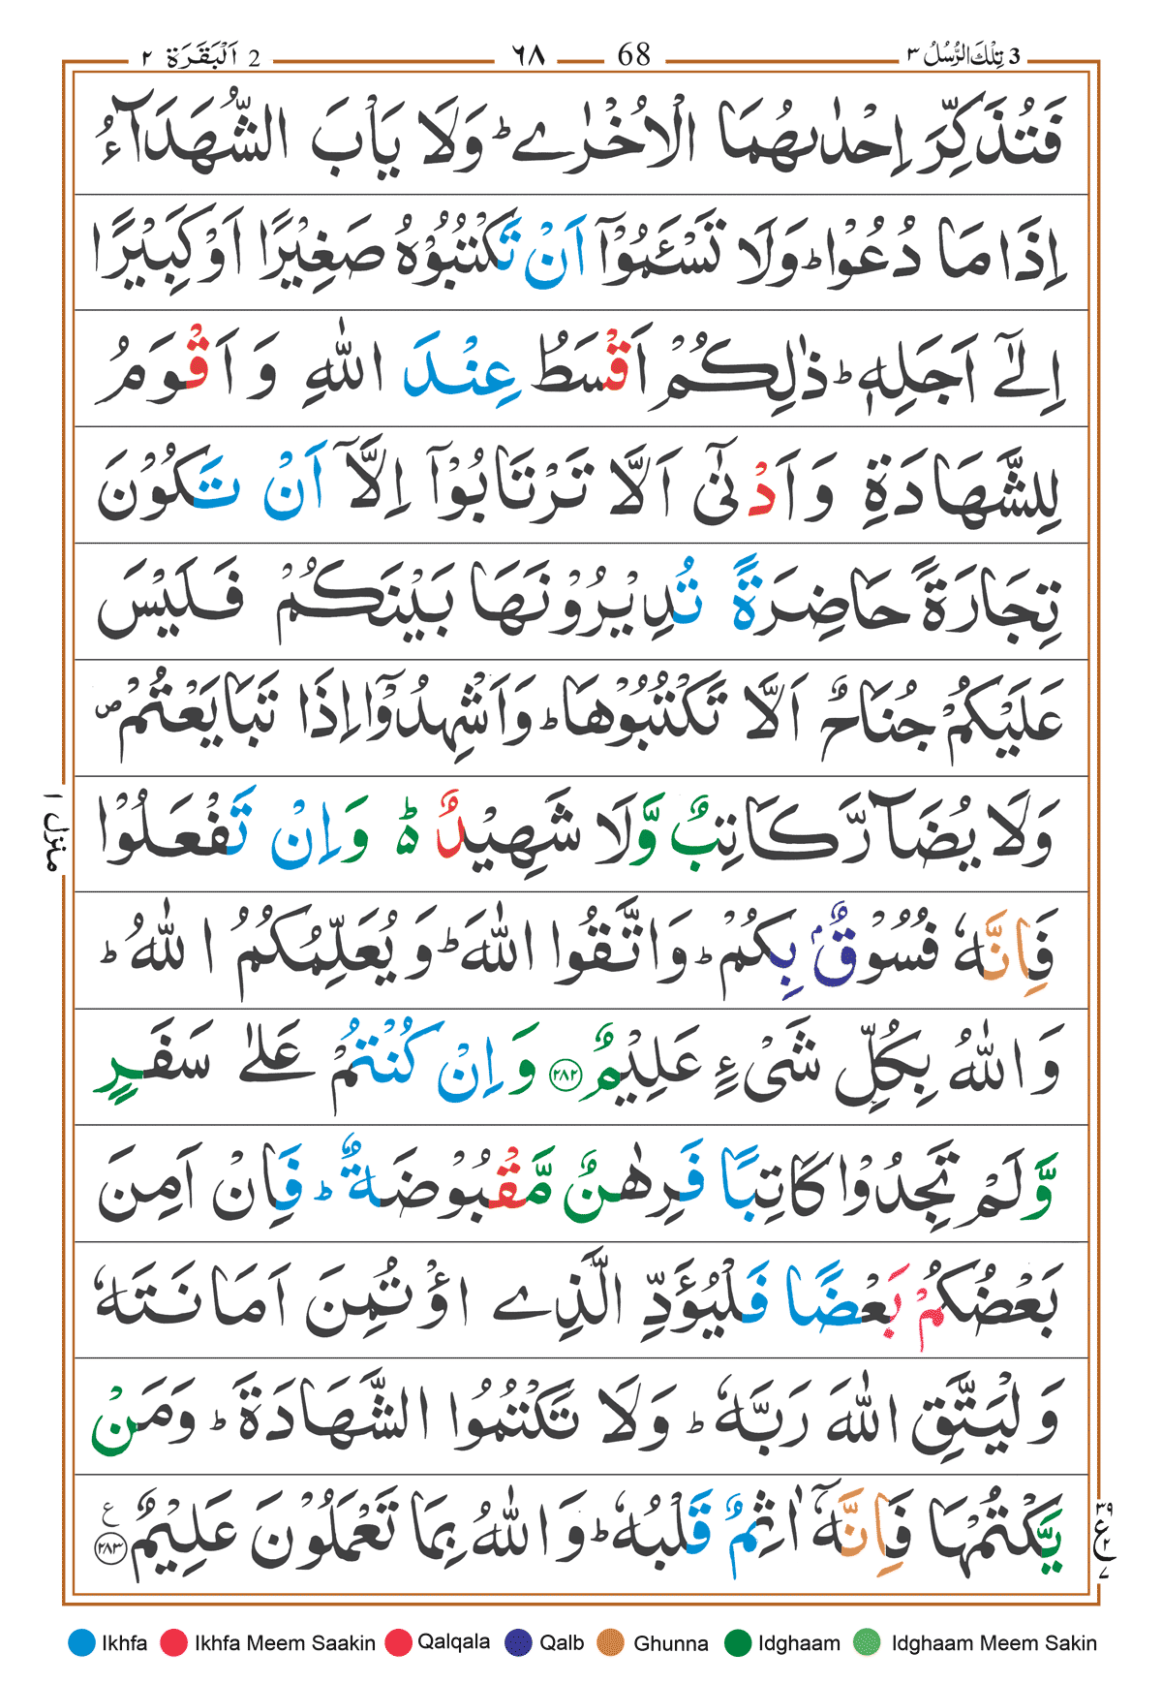 3 تِلْكَ الرُّسُلُ ٣
68
٦٨
2 اَلْبَقَرَة ٢
فَتُذَكِّرَ اِحْدٰىهُمَا الْاُخْرٰى ؕ وَلَا يَاْبَ الشُّهَدَآءُ
اِذَا مَا دُعُوْا ؕ وَلَا تَسْـَٔمُوْٓا اَنْ تَكْتُبُوْهُ صَغِيْرًا اَوْ كَبِيْرًا
اِلٰٓى اَجَلِهٖ ؕ ذٰلِكُمْ اَقْسَطُ عِنْدَ اللّٰهِ وَ اَقْوَمُ
لِلشَّهَادَةِ وَ اَدْنٰٓى اَلَّا تَرْتَابُوْٓا اِلَّآ اَنْ تَكُوْنَ
تِجَارَةً حَاضِرَةً تُدِيْرُوْنَهَا بَيْنَكُمْ فَلَيْسَ
عَلَيْكُمْ جُنَاحٌ اَلَّا تَكْتُبُوْهَا ؕ وَ اَشْهِدُوْٓا اِذَا تَبَايَعْتُمْ ۪
وَلَا يُضَآرَّ كَاتِبٌ وَّلَا شَهِيْدٌ ۬ؕ وَ اِنْ تَفْعَلُوْا
فَاِنَّهٗ فُسُوْقٌۢ بِكُمْ ؕ وَ اتَّقُوا اللّٰهَ ؕ وَ يُعَلِّمُكُمُ اللّٰهُ ؕ
وَ اللّٰهُ بِكُلِّ شَيْءٍ عَلِيْمٌ ﴿٢٨٢﴾ وَ اِنْ كُنْتُمْ عَلٰى سَفَرٍ
وَّلَمْ تَجِدُوْا كَاتِبًا فَرِهٰنٌ مَّقْبُوْضَةٌ ؕ فَاِنْ اَمِنَ
بَعْضُكُمْ بَعْضًا فَلْيُؤَدِّ الَّذِى اؤْتُمِنَ اَمَانَتَهٗ
وَ لْيَتَّقِ اللّٰهَ رَبَّهٗ ؕ وَلَا تَكْتُمُوا الشَّهَادَةَ ؕ وَمَنْ
يَّكْتُمْهَا فَاِنَّهٗٓ اٰثِمٌ قَلْبُهٗ ؕ وَ اللّٰهُ بِمَا تَعْمَلُوْنَ عَلِيْمٌ ﴿٢٨٣﴾ ع
منزل ١
٣٩
ع
٢
٧
Ikhfa Ikhfa Meem Saakin Qalqala Qalb Ghunna Idghaam Idghaam Meem Sakin